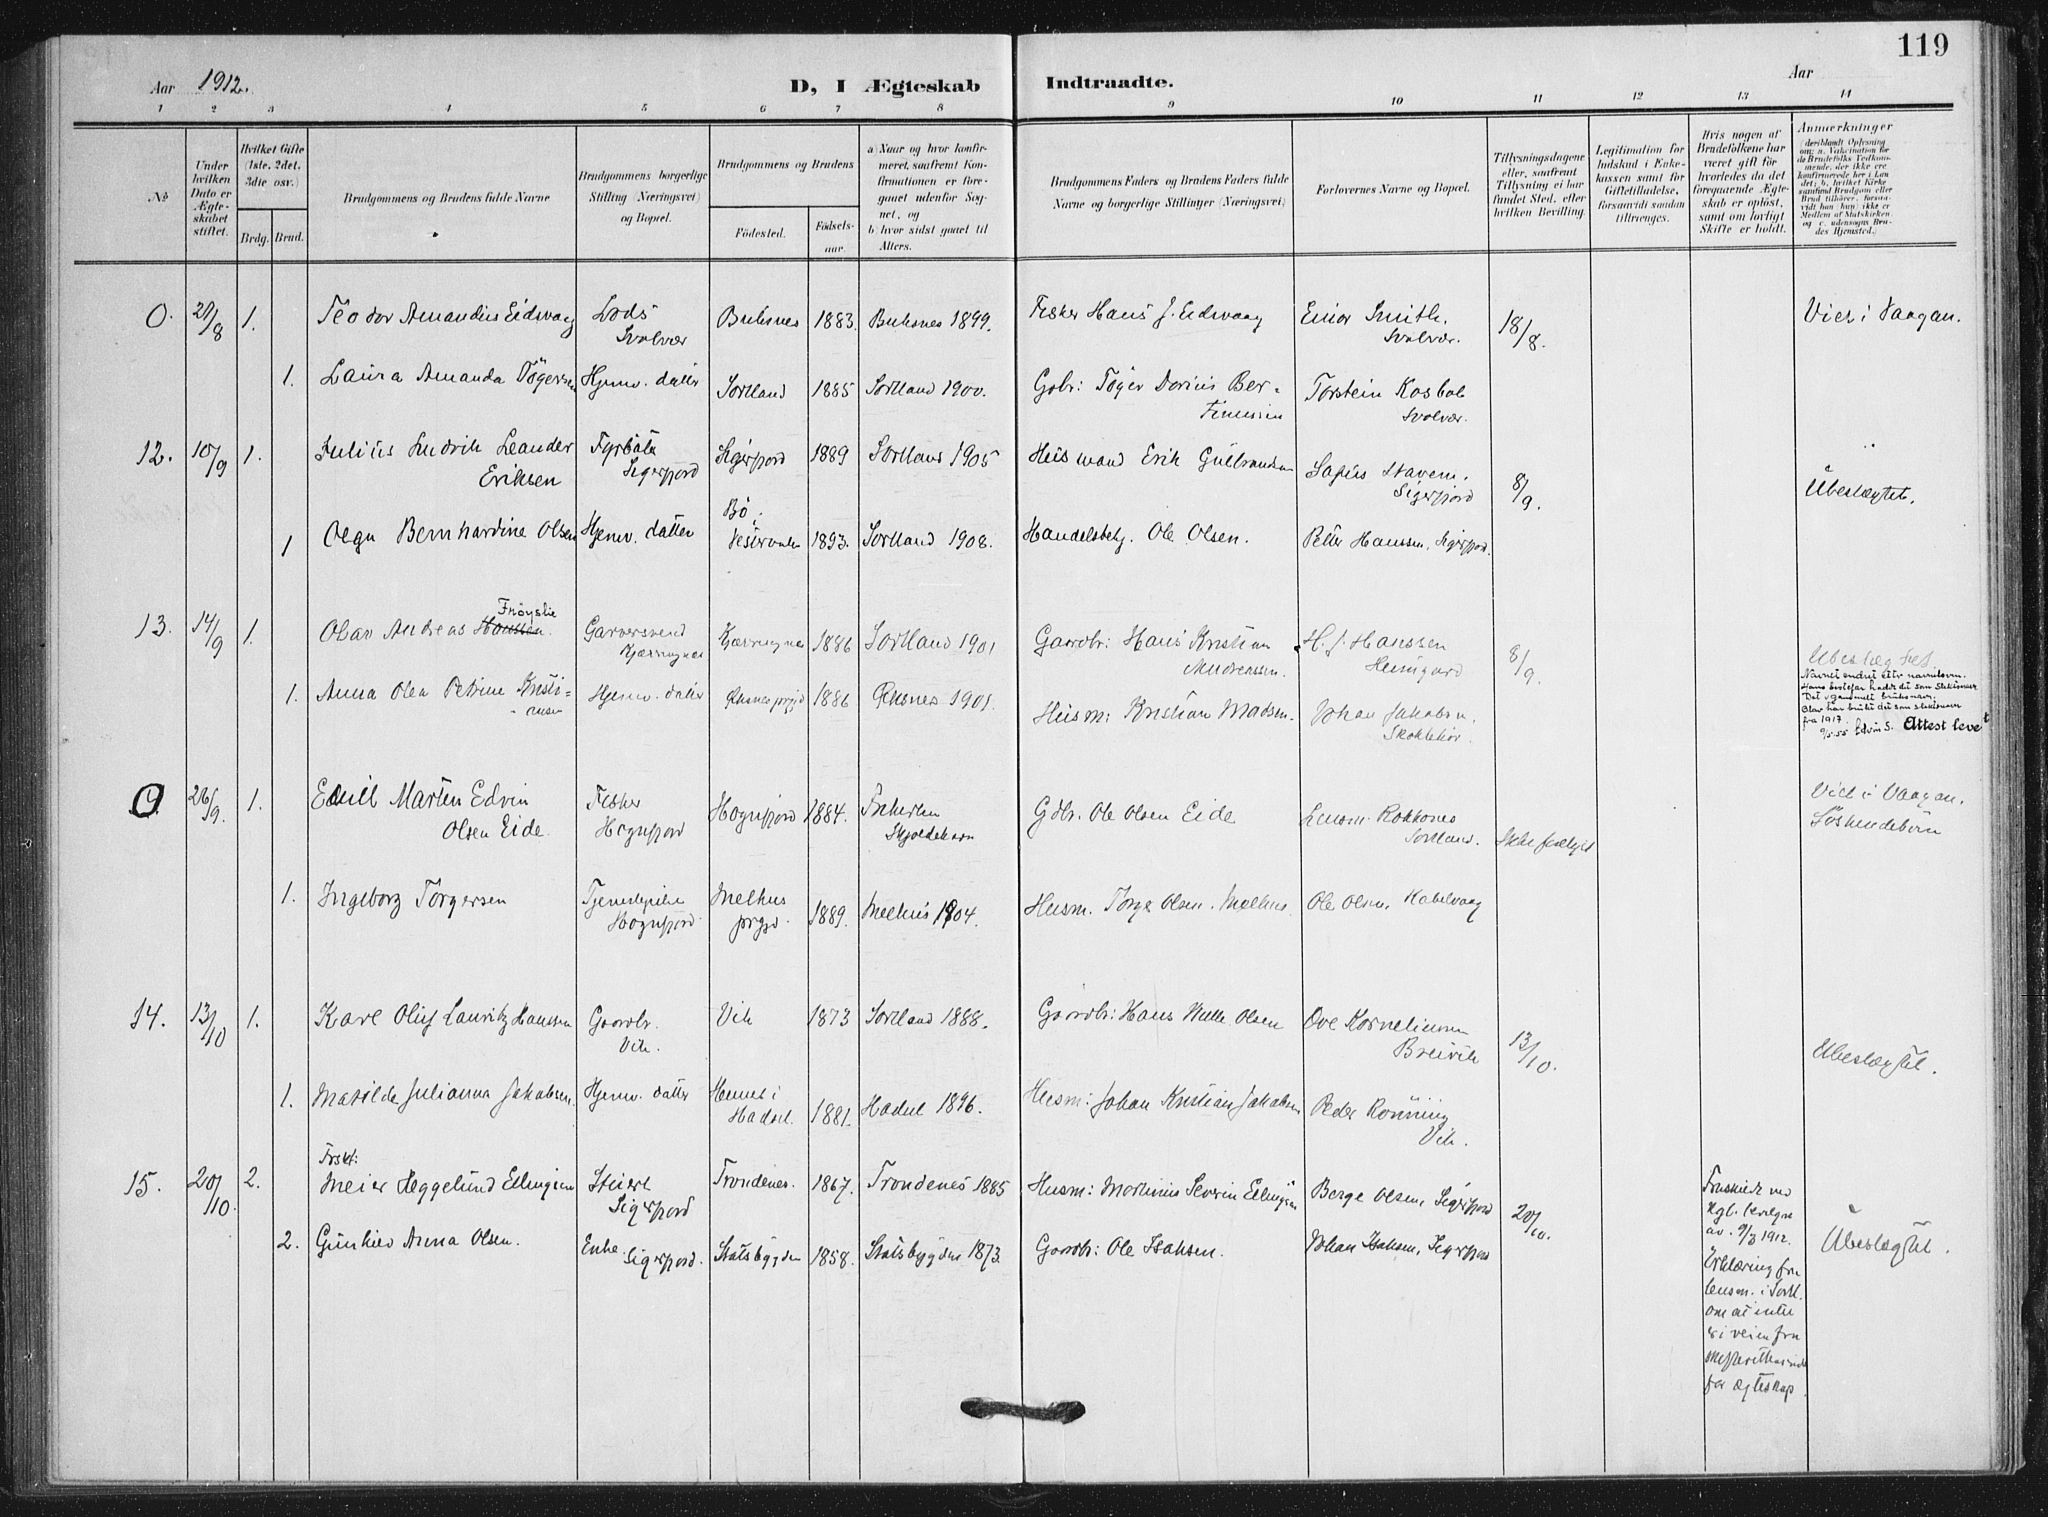 119
Aar 1912.
D, I Ægteskab Indtraadte.
Aar
1 2 3 4 5 6 7 8 9 10 11 12 13 14
No
Under hvilken Dato er Ægteskabet stiftet.
Hvilket Gifte (1ste, 2det, 3die osv.)
Brdg. Brud.
Brudgommens og Brudens fulde Navne
Brudgommens borgerlige Stilling (Næringsvei) og Bopæl.
Brudgommens og Brudens
Fødested. Fødsels-aar.
a) Naar og hvor konfirmeret, saafremt Konfirmationen er foregaaet udenfor Sognet, og
b) hvor sidst gaaet til Alters.
Brudgommens Faders og Brudens Faders fulde Navne og borgerlige Stillinger (Næringsvei)
Forlovernes Navne og Bopæl.
Tillysningsdagene eller, saafremt Tillysning ei har fundet Sted, efter hvilken Bevilling.
Legitimation for Indskud i Enkekassen samt for Giftetilladelse, forsaavidt saadan tiltrænges.
Hvis nogen af Brudefolkene har været gift før hvorledes da det foregaaende Ægteskab er opløst, samt om lovligt Skifte er holdt.
Anmerkninger
0. 1. Teodor Amandius Eidsvaag Lods Svolvær Buksnes 1883. Buksnes 1899. Fisker Hans J. Eidsvaag Einar Smith. Svolvær. 18/8. Viet i Vaagan.
1. Laura Amanda Tögersen Hjemv. datter Sortland 1885 Sortland 1900. Gbr: Töger Dorius Ber- Torstein Kosbøl Svolvær.
12. 10/9 1. Julius Ludvik Leander Eriksen Fyrböter Sigerfjord Sigerfjord 1889 Sortland 1905 Husmand Erik Gulbrandsen Stavem, Sigerfjord 8/9. Ubeslægtet.
1 Olga Bernhardine Olsen Hjemv. datter Bö, Vesteraalen 1893. Sortland 1908. Handelsbetj. Ole Olsen. Petter Hanssen, Sigerfjord.
13. 14/9 1. Olav Andreas Hanssen. Frøyslie Garversvend Kjærringnes Kjærringnes 1886 Sortland 1901 Gaardbr: Hans Kristian Andreassen. H. J. Hanssen 8/9. Ubeslægtet.
1. Anna Olea Petrine Kristiansen Hjemv. datter Öksnes prgjd 1886 Öksnes 1901. Husm: Kristian Madsen. Johan Jakobsen,
Navnet endret etter navneloven.
fra 1917.
Attest levet
26/9. 1. Emil Marten Edvin Olsen Eide. Fisker Hognfjord Hognfjord 1884. Frikirken Skjoldehavn Gdbr. Ole Olsen Eide Lensm. Rokkones Sortland. Viet i Vaagan. Söskendebörn
1. Ingeborg Torgersen Tjenestepike Hognfjord. Melhus prgjd. 1889. Melhus 1904. Husm. Torge Olsen. Melhus. Ole Olsen, Kabelvaag
14. 13/10 1. Karl Oluf Lauritz Hanssen Gaardbr. Vik. Vik 1873 Sortland 1888. Gaardbr: Hans Olsen Ove Korneliussen Breivik 13/10. Ubeslægtet.
1. Matilde Julianna Jakobsen. Hjemv. datter Hennes i Hadsel. 1881. Hadsel 1896. Husm: Johan Kristian Jakobsen Peder Rönning Vik.
15. 20/10. 2. Frskt: Meier Heggelund Ellingsen Sigerfjord Trondenes. 1867. Trondenes 1885 Husm: Martinius Severin Ellingsen Berge Olsen, Sigerfjord 20/10. Ubeslægtet.
2. Gunhild Anna Olsen. Enke. Sigerfjord. Statsbygden 1858. Statsbygden 1873. Gaardbr: Ole Isaksen. Johan Isaksen, Sigerfjord
Fraskilt ved Kgl. 1912.
Erklæring fra lensm. i Sortl. om at intet er i veien fra for ægteskap.